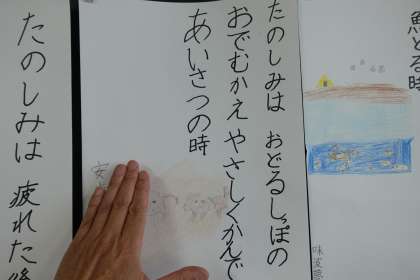 魚とる時
たのしみは おどるしっぽの
おでむかえ やさしくかんで
あいさつの時
安
たのしみは 疲れた